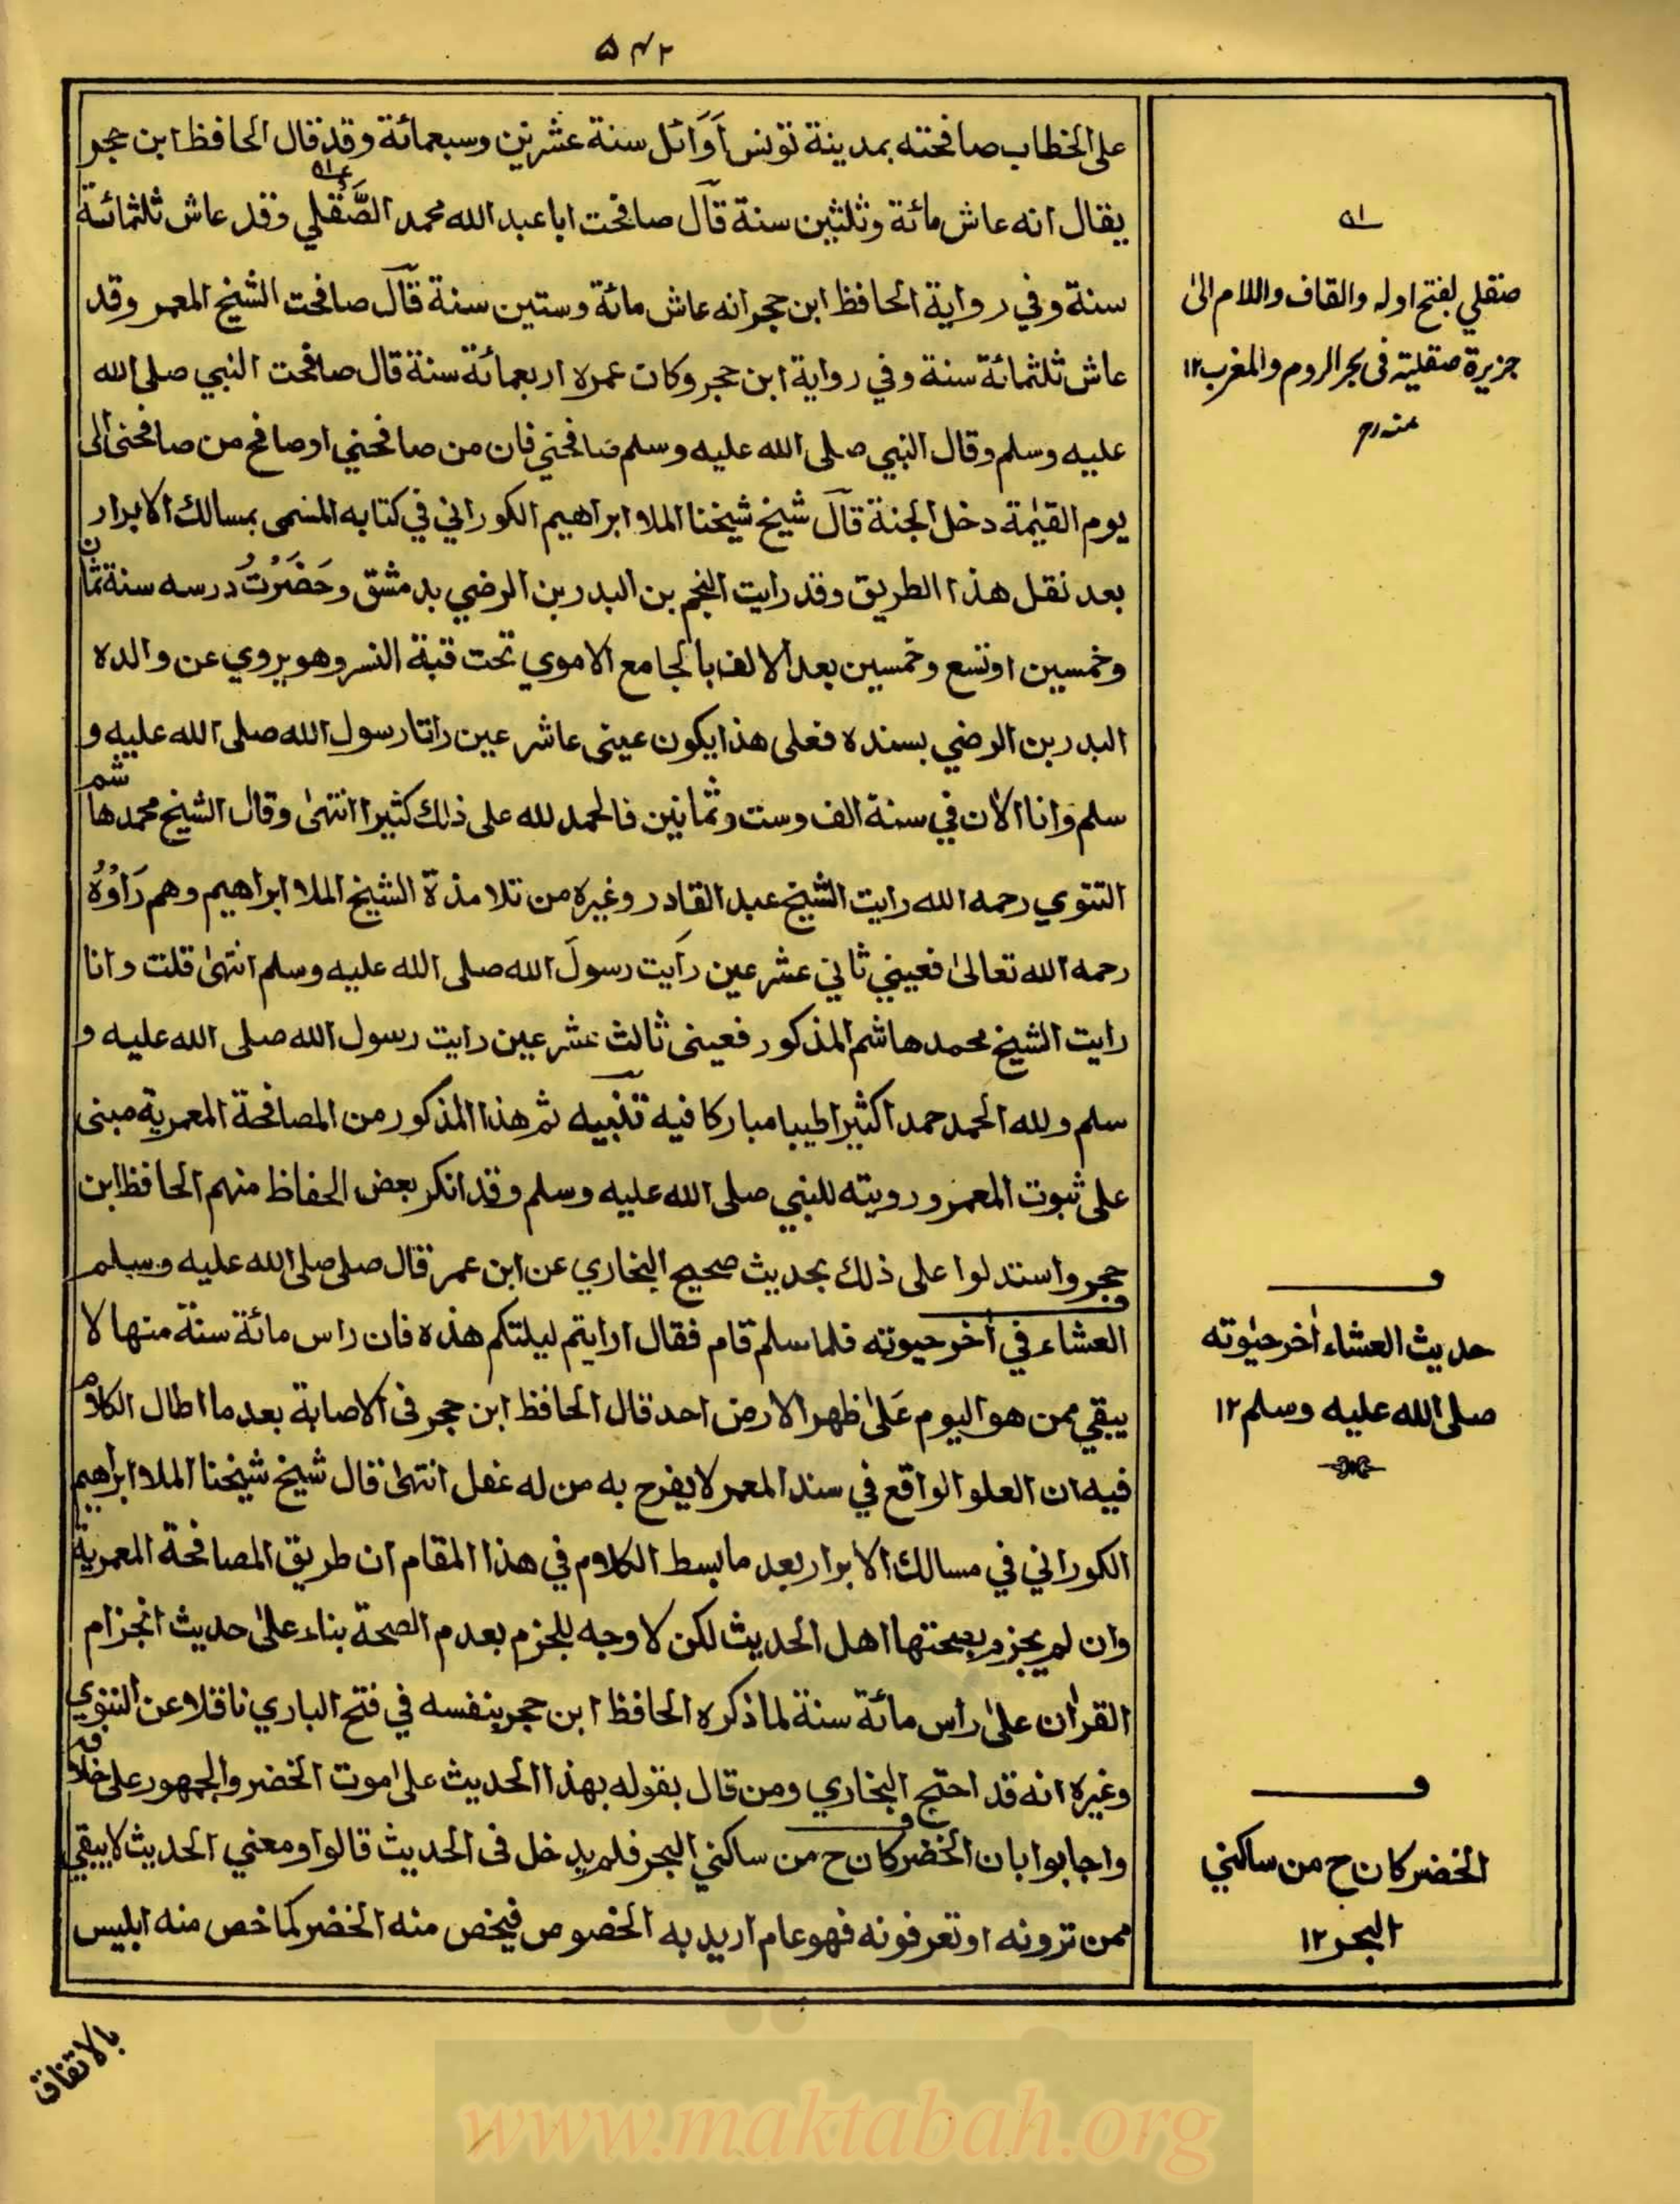 ۵۴۲
على الخطاب صافحته بمدينة تونس اوائل سنة عشرين وسبعمائة وقد قال الحافظ ابن حجر
يقال انه عاش مائة وثلثين سنة قال صافحت ابا عبد الله محمد الصَّقلي وقد عاش ثلثمائة
سنة وفي رواية الحافظ ابن حجر انه عاش مائة وستين سنة قال صافحت الشيخ المعمر وقد
عاش ثلثمائة سنة وفي رواية ابن حجر وكان عمره اربعمائة سنة قال صافحت النبي صلى الله
عليه وسلم وقال النبي صلى الله عليه وسلم صافحني فان من صافحني او صافح من صافحنى الى
يوم القيٰمة دخل الجنة قال شيخ شيخنا الملا ابراهيم الكوراني في كتابه المسمى بمسالك الابرار
بعد نقل هذا الطريق وقد رايت النجم بن البدر بن الرضي بدمشق وحَضَرْتُ درسه سنة ثمان
وخمسين او تسع وخمسين بعد الالف بالجامع الاموي تحت قبة النسر وهو يروي عن والده
البدر بن الرضي بسنده فعلى هذا يكون عينى عاشر عين راتا رسول الله صلى الله عليه و
سلم وانا الأن في سنة الف وست وثمانين فالحمد لله على ذلك كثيرا انتهىٰ وقال الشيخ محمد هاشم
التتوي رحمه الله رايت الشيخ عبد القادر وغيره من تلامذة الشيخ الملا ابراهيم وهم رَاوْهُ
رحمه الله تعالىٰ فعيني ثاني عشر عين رأيت رسولَ الله صلى الله عليه وسلم انتهىٰ قلت وانا
رايت الشيخ محمد هاشم المذكور فعينى ثالث عشر عين رايت رسول الله صلى الله عليه و
سلم ولله الحمد حمدا كثيرا طيبا مباركا فيه تنبيه ثم هذا المذكور من المصافحة المعمرية مبنى
على ثبوت المعمر ورويته للنبي صلى الله عليه وسلم وقد انكر بعض الحفاظ منهم الحافظ ابن
حجر واستدلوا على ذلك بحديث صحيح البخاري عن ابن عمر قال صلى صلى الله عليه وسلم
العشاء في أخر حيوته فلما سلم قام فقال ارايتم ليلتكم هذه فان راس مائة سنة منها لا
يبقي ممن هو اليوم عَلىٰ ظهر الارض احد قال الحافظ ابن حجر فى الاصابة بعد ما اطال الكلام
فيه ان العلو الواقع في سند المعمر لا يفرح به من له عقل انتهىٰ قال شيخ شيخنا الملا ابراهيم
الكوراني في مسالك الابرار بعد ما بسط الكلام في هذا المقام ان طريق المصافحة المعمرية
وان لم يجزم بصحتها اهل الحديث لكن لا وجه للجزم بعدم الصحة بناء علىٰ حديث انجزام
القرأن علىٰ راس مائة سنة لما ذكره الحافظ ابن حجر بنفسه في فتح الباري ناقلا عن النووي
وغيره انه قد احتج البخاري ومن قال بقوله بهذا الحديث على موت الخضر والجمهور على خلافه
واجابوا بان الخضر كان ح من ساكني البحر فلم يدخل فى الحديث قالوا ومعني الحديث لا يبقي
ممن ترونه او تعرفونه فهو عام اريد به الخصوص فيخص منه الخضر كما خص منه ابليس
صقلي بفتح اوله والقاف واللام الىٰ
جزيرة صقلية فى بحر الروم والمغرب ١٢
منه رح
حديث العشاء أخر حيٰوته
صلى الله عليه وسلم ١٢
الخضر كان ح من ساكني
البحر ١٢
بالاتفاق
www.maktabah.org